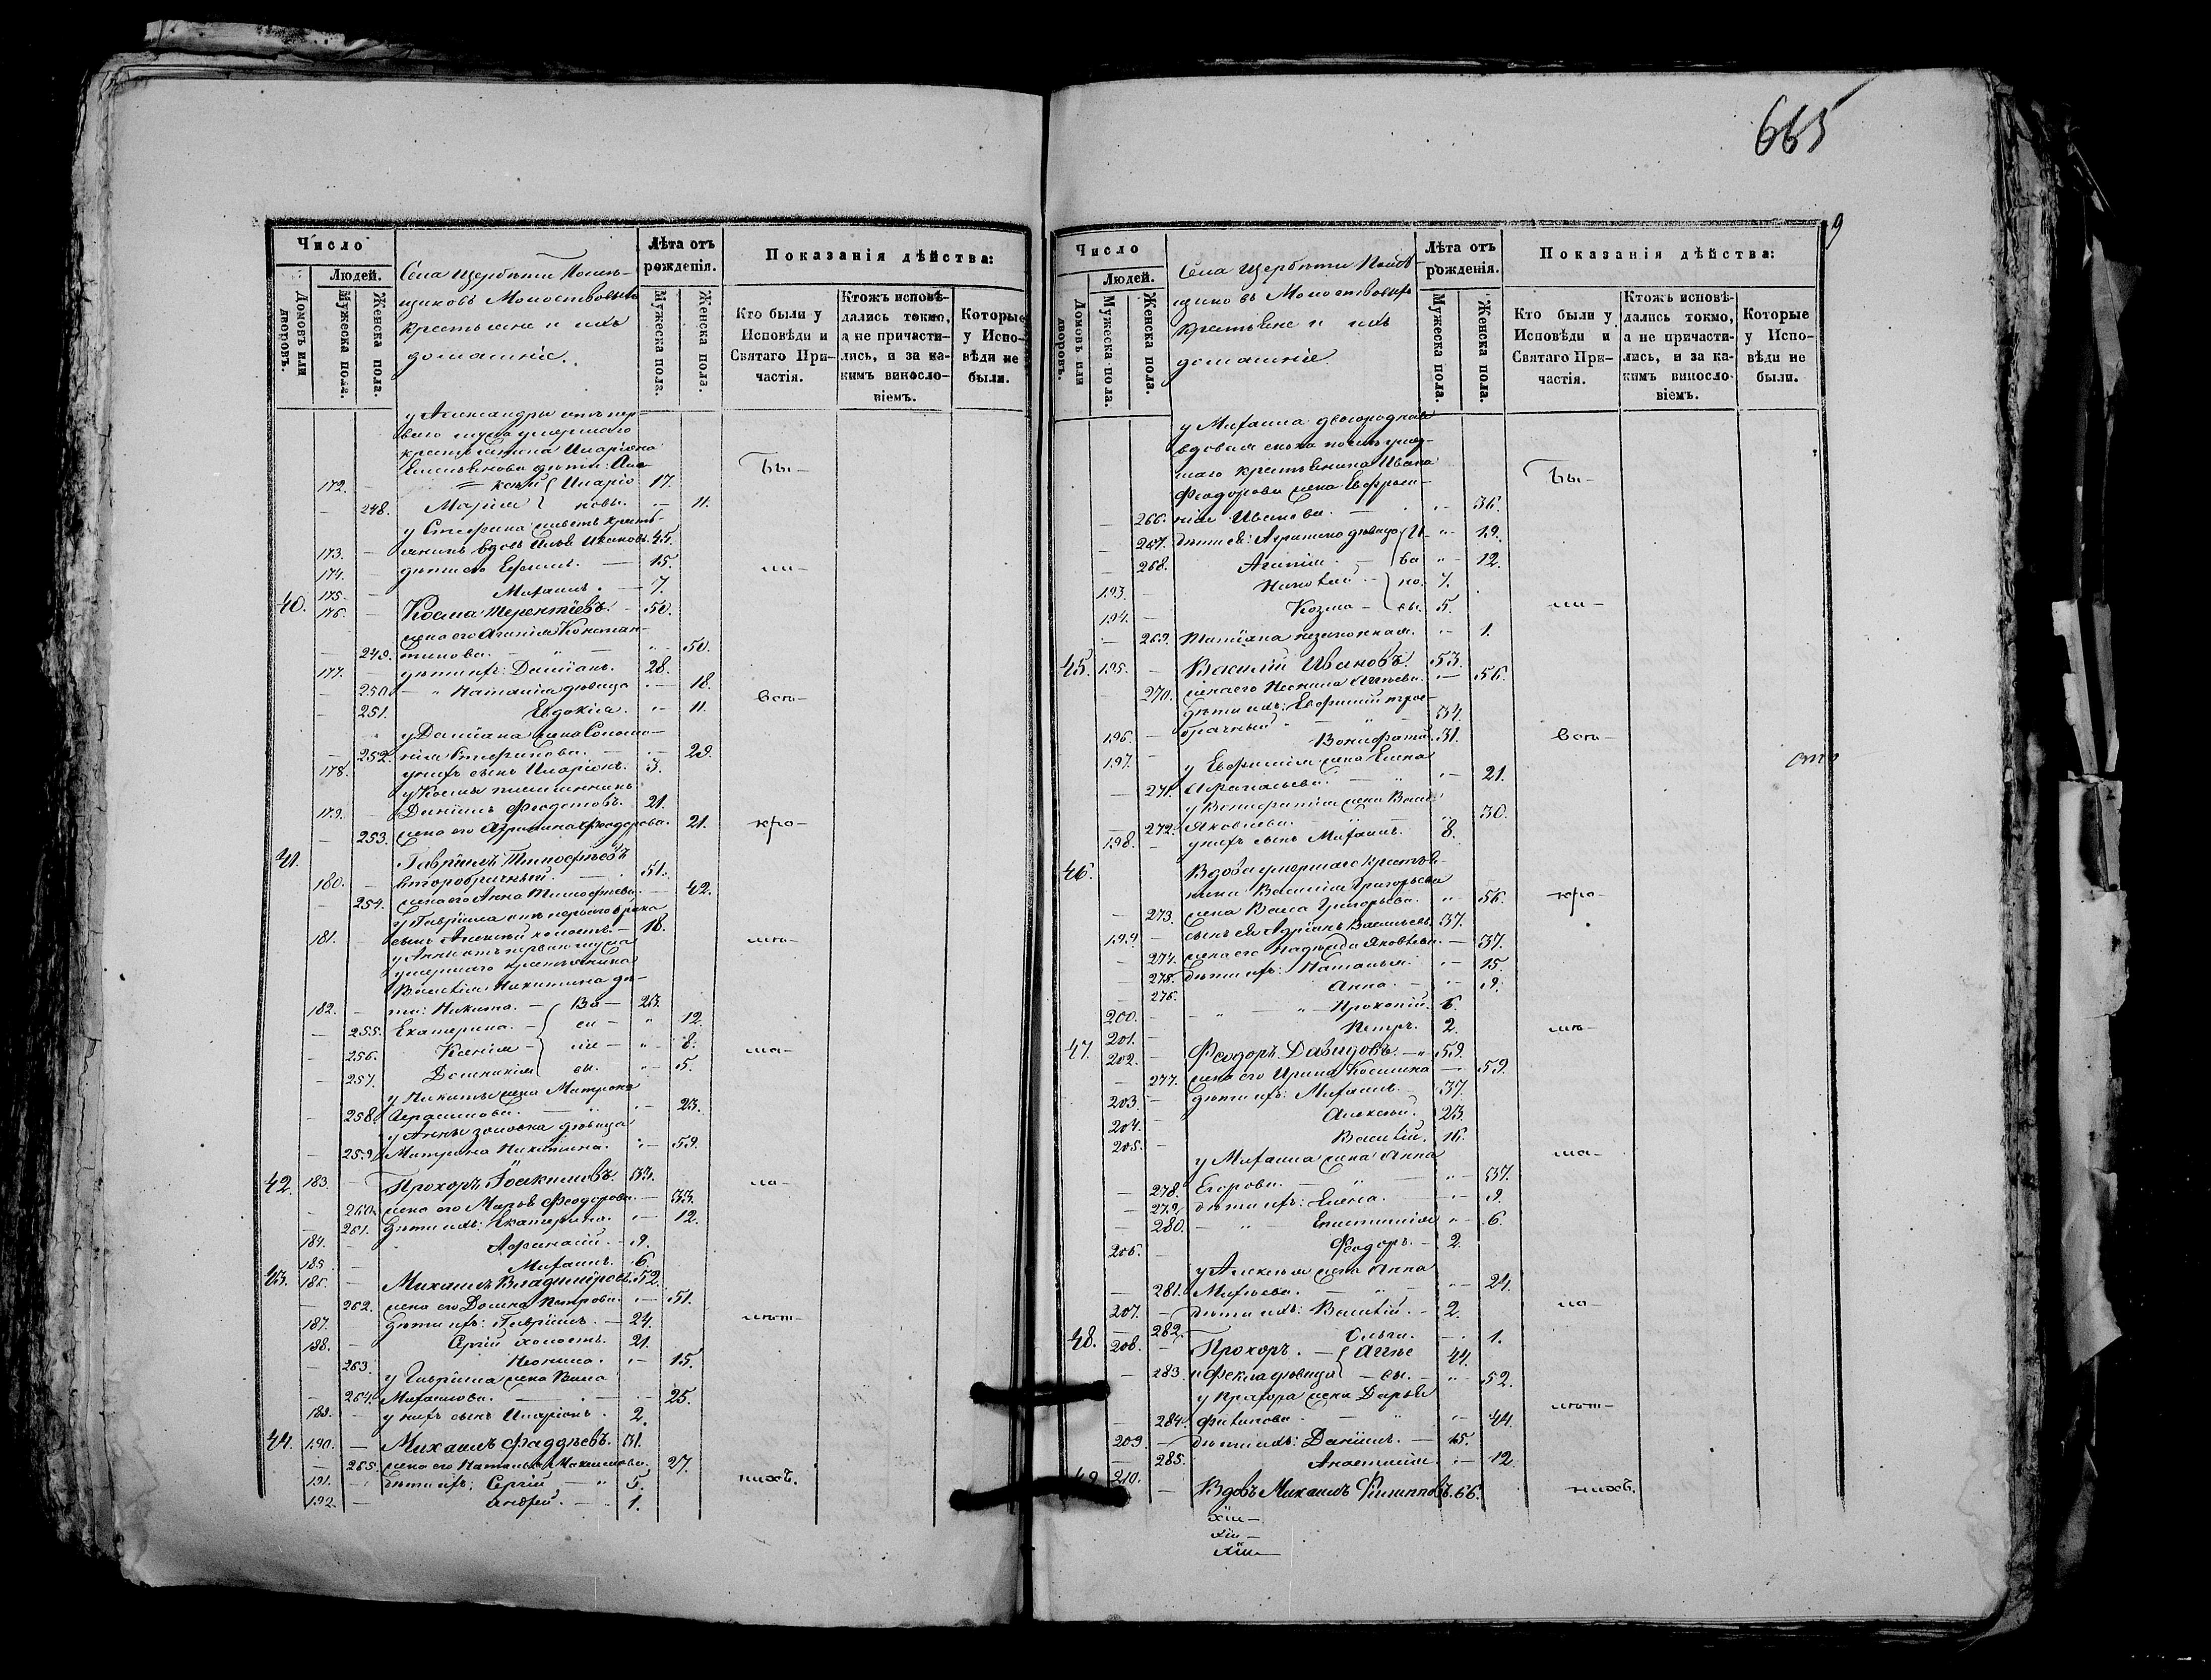 665
9
Число
Людей.
Домовъ или дворовъ.
Мужеска пола.
Женска пола.
Села Щербети Помѣ-
щиковъ Молоствовыхъ
крестьяне и ихъ
домашніе.
Лѣта отъ рожденія.
Мужеска пола.
Женска пола.
Показанія дѣйства:
Кто были у Исповѣди и Святаго Причастія.
Ктожъ исповѣдались токмо, а не причастились, и за какимъ винословіемъ.
Которые у Исповѣди не были.
у Александры отъ пер-
ваго мужа умершаго
крестьянина Иларіона
Емельянова дѣти: Але-
172. — ксѣй Иларіо 17. Бы-
— 248. Марія новы. — 11.
у Стефана
173. — вдовъ Илья Ивановъ 45.
174. — дѣти его Ефимъ. — 15. ли-
175. — Михаилъ. — 7.
40. 176. — Косма Терентіевъ. — 50.
жена его Агапія Констан-
— 249. тинова. — 50.
177. — дѣти ихъ: Даміанъ. 28.
— 250. Наталія дѣвица — 18.
— 251. Евдокія. — 11. всѣ-
у Даміана жена Соломо-
— 252. нія Стефанова. — 29.
178. у нихъ сынъ Иларіонъ. 3.
у Космы племянникъ
179. — Даніилъ Феодотовъ. 21.
— 253. жена его Агрипина Феодорова. 21. кро-
41. Гавріилъ Тимофѣевъ
180. — второбрачный. — 51.
— 254. жена его Анна Тимофѣева. — 42.
у Гавріила отъ перваго брака
181. — сынъ Алексѣй холостъ. — 18.
у Анны отъ перваго мужа
умершаго крестьянина
Василія Никитина дѣ-
182. — ти: Никита. — Ва — 23.
— 255. Екатерина. — си — 12.
— 256. Ксенія — лье — 8. ма-
— 257. Домникія вы. — 5.
у Никиты жена Матрона
— 258. Герасимова. — 23.
у Анны золовка дѣвица
— 259. Матрона Никитина. — 59.
42. 183. — Прохоръ Іоакимовъ. 33. ло-
— 260. жена его Марья Феодорова. — 33.
— 261. дѣти ихъ: Екатерина. — 12.
184. — Афанасій. — 9.
185. — Михаилъ. 6.
43. 186. — Михаилъ Владиміровъ. 52.
— 262. жена его Домна Петрова. — 51.
187. — дѣти ихъ: Гавріилъ. — 24. лѣт-
188. — Сергій холостъ. 21.
— 263. Неонила. — 15.
у Гавріила жена Васса
— 264. Михаилова. — 25.
189. — у нихъ сынъ Иларіонъ. 2.
44. 190. — Михаилъ Фаддѣевъ. 31.
— 265. жена его Наталья Максимова. 27.
191. — дѣти ихъ: Сергій — 5. нихъ.
192. — Андрей. — 1.
Число
Людей.
Домовъ или дворовъ.
Мужеска пола.
Женска пола.
Села Щербети Помѣ-
щиковъ Молоствовыхъ
крестьяне и ихъ
домашніе
Лѣта отъ рожденія.
Мужеска пола.
Женска пола.
Показанія дѣйства:
Кто были у Исповѣди и Святаго Причастія.
Ктожъ исповѣдались токмо, а не причастились, и за какимъ винословіемъ.
Которые у Исповѣди не были.
у Михаила двоюродная
вдовая сноха послѣ умер-
шаго крестьянина Ивана
Феодорова жена Евфроси- Бы-
— 266. нія Иванова. — 36.
— 267. дѣти ея: дѣвица И — 19.
— 268. Агапія. — ва 12.
193. — Николай — но 7.
194. — Козма — вы. 5. ли-
— 269. Татіана незаконная. — 1.
45. 195. — Василій Ивановъ. 53.
270. жена его Неонила — 56.
дѣти ихъ: Евфимій
196. — брачный — 34.
197. — Вонифатій. 31. всѣ-
у Евфимія жена Елена
— 271. — 21.
у Вонифатія жена Васса
— 272. Яковлева. — 30.
198. — у нихъ сынъ Михаилъ. 8.
46. Вдова умершаго крестья-
нина Василія Григорьева
— 273. жена Васса Григорьева. — 56. кро-
199. — сынъ ея Адріанъ Васильевъ. 37.
— 274. жена его Надежда Яковлева. — 37.
— 275. дѣти ихъ: Наталья. — 15.
— 276. Анна. — 9.
200. — Прокопій. 6.
201. — Петръ. 2. лѣ-
47. 202. — Феодоръ Давидовъ. — 59.
— 277. жена его Ирина Космина — 59.
203. — дѣти ихъ: Михаилъ. 37.
204. Алексѣй. 23.
205. — Василій. 16.
у Михаила жена Анна ма-
— 278. Егорова. — 37.
— 279. дѣти ихъ: Елена. — 9.
— 280. Епистимія — 6.
206. — Феодоръ. — 2.
у Алексѣя жена Анна
— 281. — 24.
207. — дѣти ихъ: Василій. — 2. ло-
— 282. Ольга. — 1.
48. 208. — Прохоръ. — 44.
— 283. и Фекла дѣвица — вы. — 52.
у Прохора жена Дарья
— 284. Филипова. — 44. лѣт-
209. — дѣти ихъ: Даніилъ. — 15.
— 285. Анастасія. — 12.
49. 210. — Вдовъ Михаилъ Филипповъ. 66. нихъ.